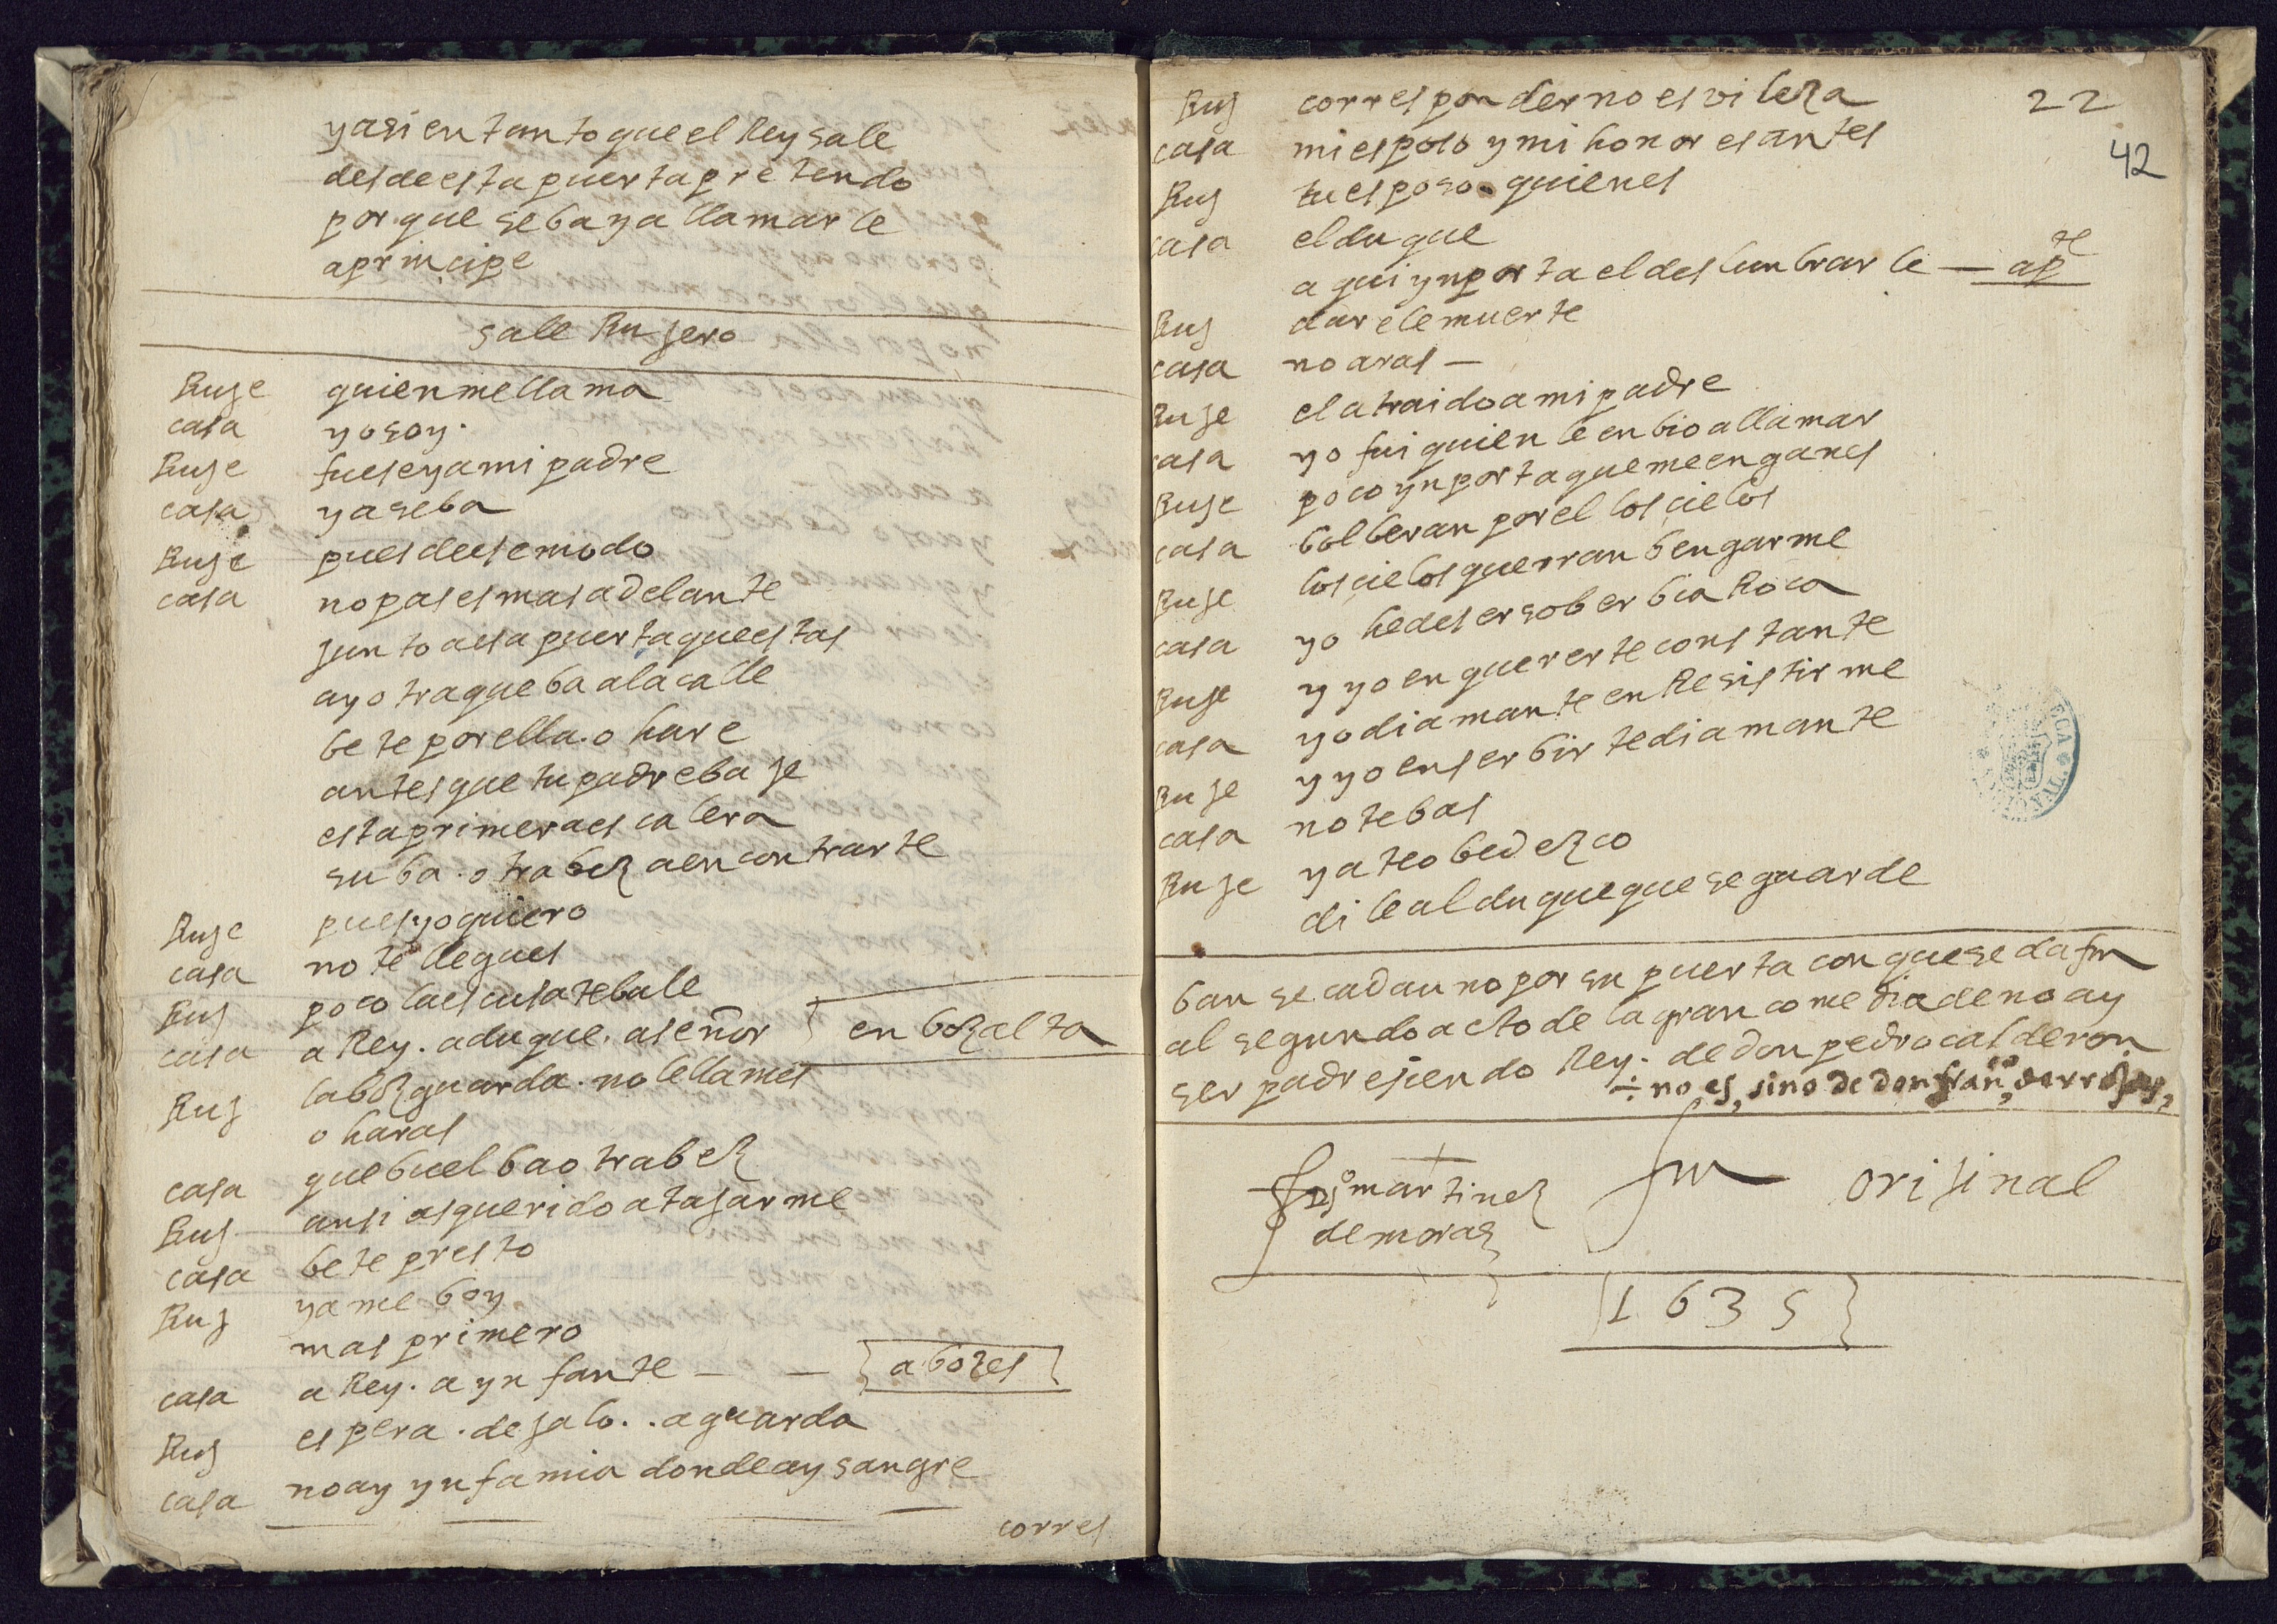 y asi en tanto que el Rey sale
desde esta puerta pretendo
por que se baya llamarle
a principe
sale Rujero
Ruje quien me llama
casa yo soy.
Ruje fuese ya mi padre
casa ya se ba
Ruje pues de ese modo
casa no pases mas adelante
junto a esa puerta que estas
ay otra que ba a la calle
bete por ella. o hare
antes que tu padre baje
esta primera escalera
suba. otra bez a encontrarte
Ruje pues yo quiero
casa no te llegues
Ruj poco la escusa te bale
casa a Rey. a duque. a señor } en boz alta
Ruj la boz guarda. no le llames
o haras
casa que buelba otra bez
Ruj ansi as querido atajarme
casa bete presto
Ruj ya me boy
mas primero
casa a Rey. a ynfante — — { a bozes }
Ruj espera. dejalo. . aguarda
casa no ay ynfamia donde ay sangre
corres
22
42
Ruj corresponder no es vileza
casa mi esposo y mi honor es antes
Ruj tu esposo. quien es
casa el duque
a qui ynporta el deslunbrarle — apte
Ruj darele muerte
casa no aras —
Ruje el a traido a mi padre
casa yo fui quien le enbio a llamar
Ruje poco ynporta que me enganes
casa bolberan por el los cielos
Ruje los cielos querran bengarme
casa yo he de ser soberbia Roca
Ruje y yo en quererte constante
casa yo diamante en Resistirme
Ruje y yo en serbirte diamante
casa no te bas
Ruje ya te obedezco
dile al duque que se guarde
banse cada uno por su puerta con que se da fin
al segundo acto de la gran comedia de no ay
ser padre siendo Rey. de don pedro calderon
÷ no es, sino de don franco, de rrojas,
martinez
de mora
fin
orijinal
1635